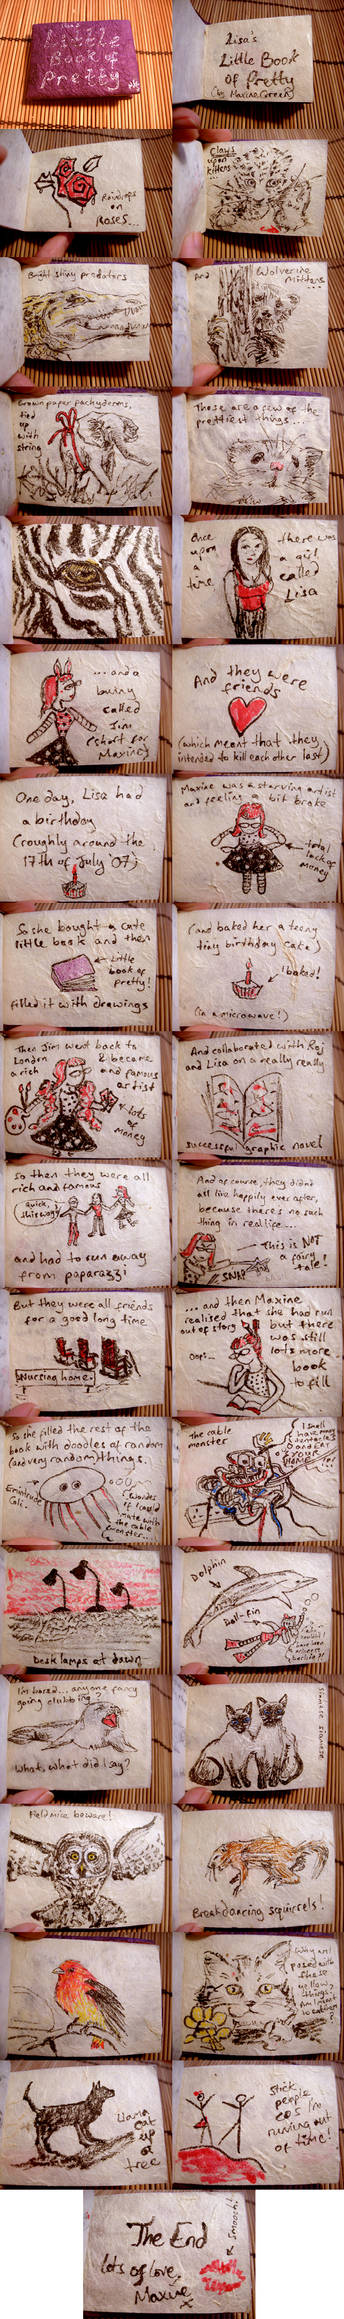 Lisa's
Little
Book of
Pretty
Lisa's
Little Book
of Pretty
(by Maxine Green)
Raindrops
on
Roses...
Claws
upon
kittens...
Bright shiny predators
And Wolverine
Mittens...
Brown paper pachyderms,
tied
up
with
string
These are a few of the
prettiest things...
Once
upon
a
time
there was
a girl
called
Lisa
...and a
bunny
called
Jim
(short for
Maxine)
And they were
friends
(which meant that they
intended to kill each other last)
One day, Lisa had
a birthday
(roughly around the
17th of July '07)
Maxine was a starving artist
and feeling a bit broke
total
lack of
money
So she bought a cute
little book and then
Little
book of
pretty!
filled it with drawings
(and baked her a teeny
tiny birthday cake)
baked!
(in a microwave!)
Then Jim went back to
London & became
a rich and famous
artist
lots
of
money
And collaborated with Raj
and Lisa on a really really
successful graphic novel
So then they were all
rich and famous
Quick,
this way!
and had to run away
from paparazzi
And of course, they didn't
all live happily ever after,
because there's no such
thing in real life...
This is NOT
a fairy
tale!
SNAP
But they were all friends
for a good long time
Nursing home
...and then Maxine
realised that she had run
out of story but there
was still
lots more
book
to fill
Oops...
So she filled the rest of the
book with doodles of random
(and very random) things.
Ermintrude
Coli
I wonder
if I could
mate with
the cable
monster...
The cable
monster
I shall
have more
tentacles
and EAT
YOUR
HOME
Desk lamps at dawn
Dolphin
Doll-fin
I'm bored... anyone fancy
going clubbing?
What, what did I say?
Siamese siamese
Field mice beware!
Breakdancing squirrels!
Why am I
posed with
these
yellow
things.
Am I meant
to eat them
?
Llama
cat
up a
tree
Stick
people
cos I'm
running out
of time!
The End
Lots of love,
Maxine
x
smooch!!